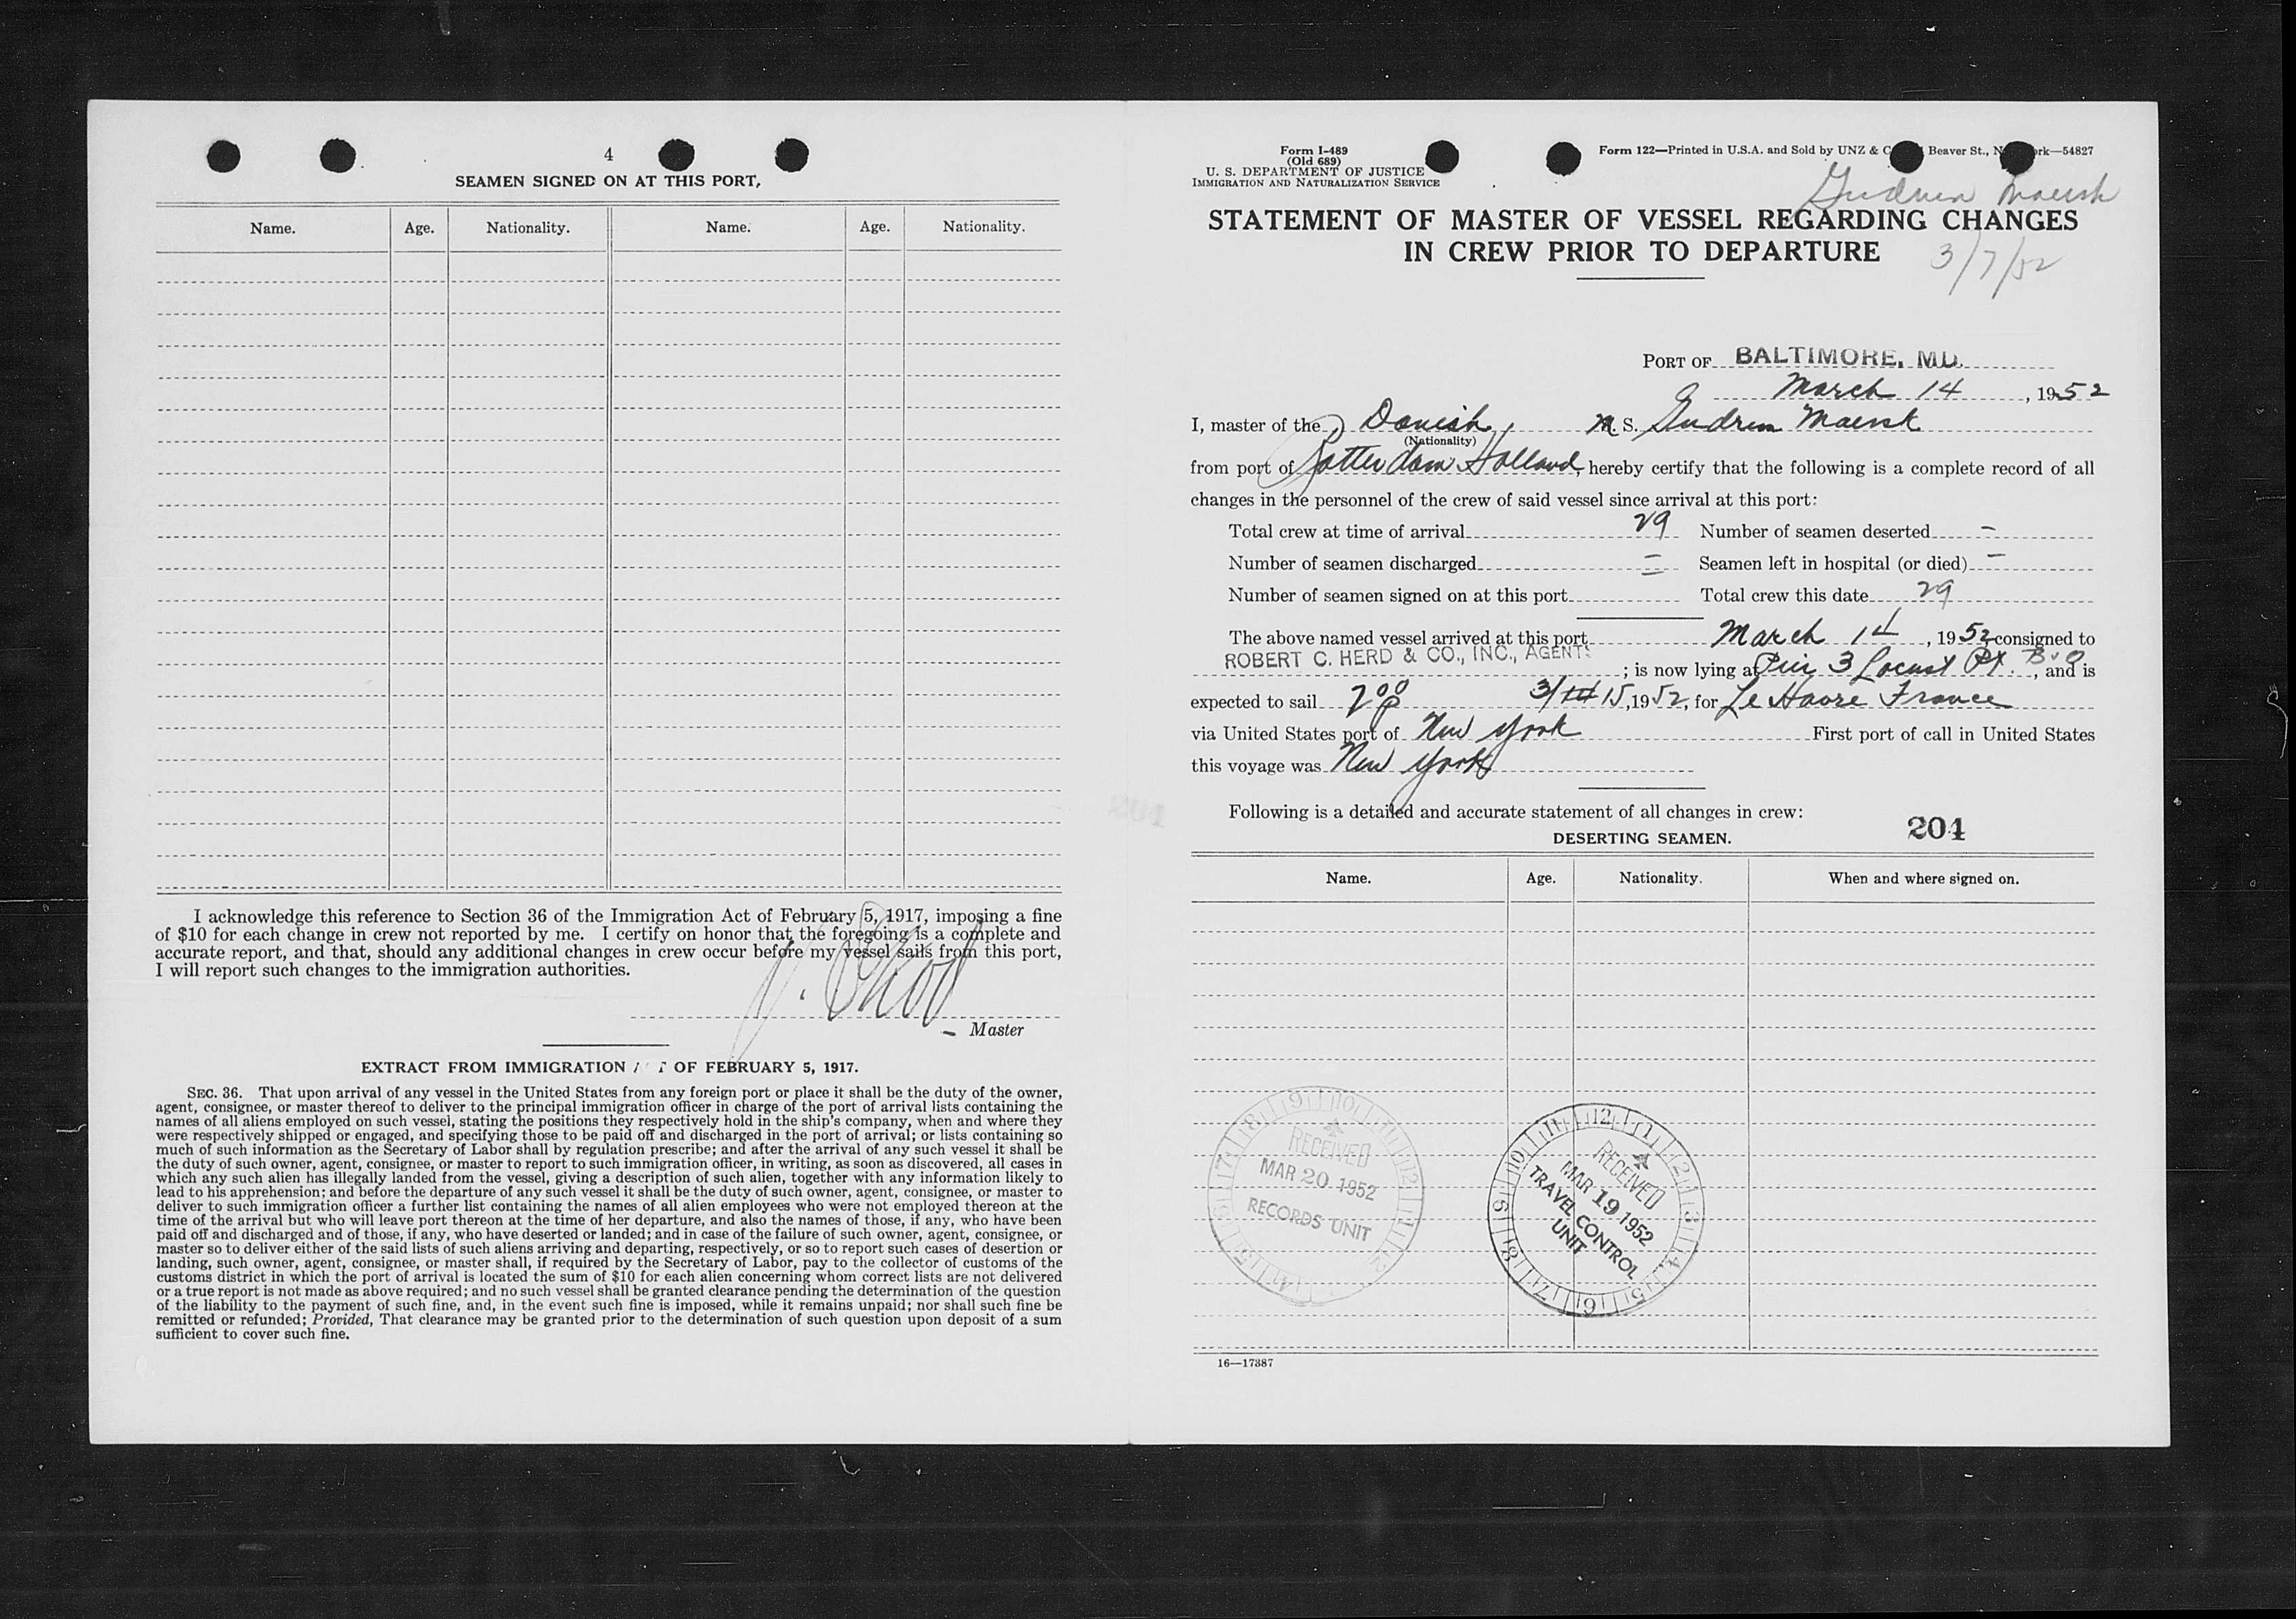 4
SEAMEN SIGNED ON AT THIS PORT,
Name. Age. Nationality. Name. Age. Nationality.
I acknowledge this reference to Section 36 of the Immigration Act of February 5, 1917, imposing a fine
of $10 for each change in crew not reported by me. I certify on honor that the foregoing is a complete and
accurate report, and that, should any additional changes in crew occur before my vessel sails from this port,
I will report such changes to the immigration authorities.
Master
EXTRACT FROM IMMIGRATION A T OF FEBRUARY 5, 1917.
SEC. 36. That upon arrival of any vessel in the United States from any foreign port or place it shall be the duty of the owner,
agent, consignee, or master thereof to deliver to the principal immigration officer in charge of the port of arrival lists containing the
names of all aliens employed on such vessel, stating the positions they respectively hold in the ship's company, when and where they
were respectively shipped or engaged, and specifying those to be paid off and discharged in the port of arrival; or lists containing so
much of such information as the Secretary of Labor shall by regulation prescribe; and after the arrival of any such vessel it shall be
the duty of such owner, agent, consignee, or master to report to such immigration officer, in writing, as soon as discovered, all cases in
which any such alien has illegally landed from the vessel, giving a description of such alien, together with any information likely to
lead to his apprehension; and before the departure of any such vessel it shall be the duty of such owner, agent, consignee, or master to
deliver to such immigration officer a further list containing the names of all alien employees who were not employed thereon at the
time of the arrival but who will leave port thereon at the time of her departure, and also the names of those, if any, who have been
paid off and discharged and of those, if any, who have deserted or landed; and in case of the failure of such owner, agent, consignee, or
master so to deliver either of the said lists of such aliens arriving and departing, respectively, or so to report such cases of desertion or
landing, such owner, agent, consignee, or master shall, if required by the Secretary of Labor, pay to the collector of customs of the
customs district in which the port of arrival is located the sum of $10 for each alien concerning whom correct lists are not delivered
or a true report is not made as above required; and no such vessel shall be granted clearance pending the determination of the question
of the liability to the payment of such fine, and, in the event such fine is imposed, while it remains unpaid; nor shall such fine be
remitted or refunded; Provided, That clearance may be granted prior to the determination of such question upon deposit of a sum
sufficient to cover such fine.
Form I-489
(Old 689)
U. S. DEPARTMENT OF JUSTICE
IMMIGRATION AND NATURALIZATION SERVICE
Form 122—Printed in U.S.A. and Sold by UNZ & C Beaver St., N rk—54827
Gudrun Maersk
STATEMENT OF MASTER OF VESSEL REGARDING CHANGES
IN CREW PRIOR TO DEPARTURE
3/7/52
PORT OF BALTIMORE, MD.
March 14, 1952
I, master of the Danish M. S. Gudrun Maersk
(Nationality)
from port of Rotterdam Holland, hereby certify that the following is a complete record of all
changes in the personnel of the crew of said vessel since arrival at this port:
Total crew at time of arrival 29 Number of seamen deserted -
Number of seamen discharged - Seamen left in hospital (or died) -
Number of seamen signed on at this port - Total crew this date 29
The above named vessel arrived at this port March 14, 1952 consigned to
ROBERT C. HERD & CO., INC., AGENTS ; is now lying at Pier 3 Locust Pt. B+O, and is
expected to sail 2 00 P 3/14 15, 1952, for Le Havre France
via United States port of New York First port of call in United States
this voyage was New York
Following is a detailed and accurate statement of all changes in crew:
DESERTING SEAMEN.
204
Name. Age. Nationality. When and where signed on.
RECEIVED
MAR 20 1952
RECORDS UNIT
RECEIVED
MAR 19 1952
TRAVEL CONTROL
UNIT
16—17387